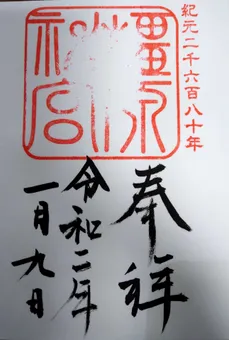 紀元二千六百八十年
橿原神宮
奉拝
令和二年
一月九日